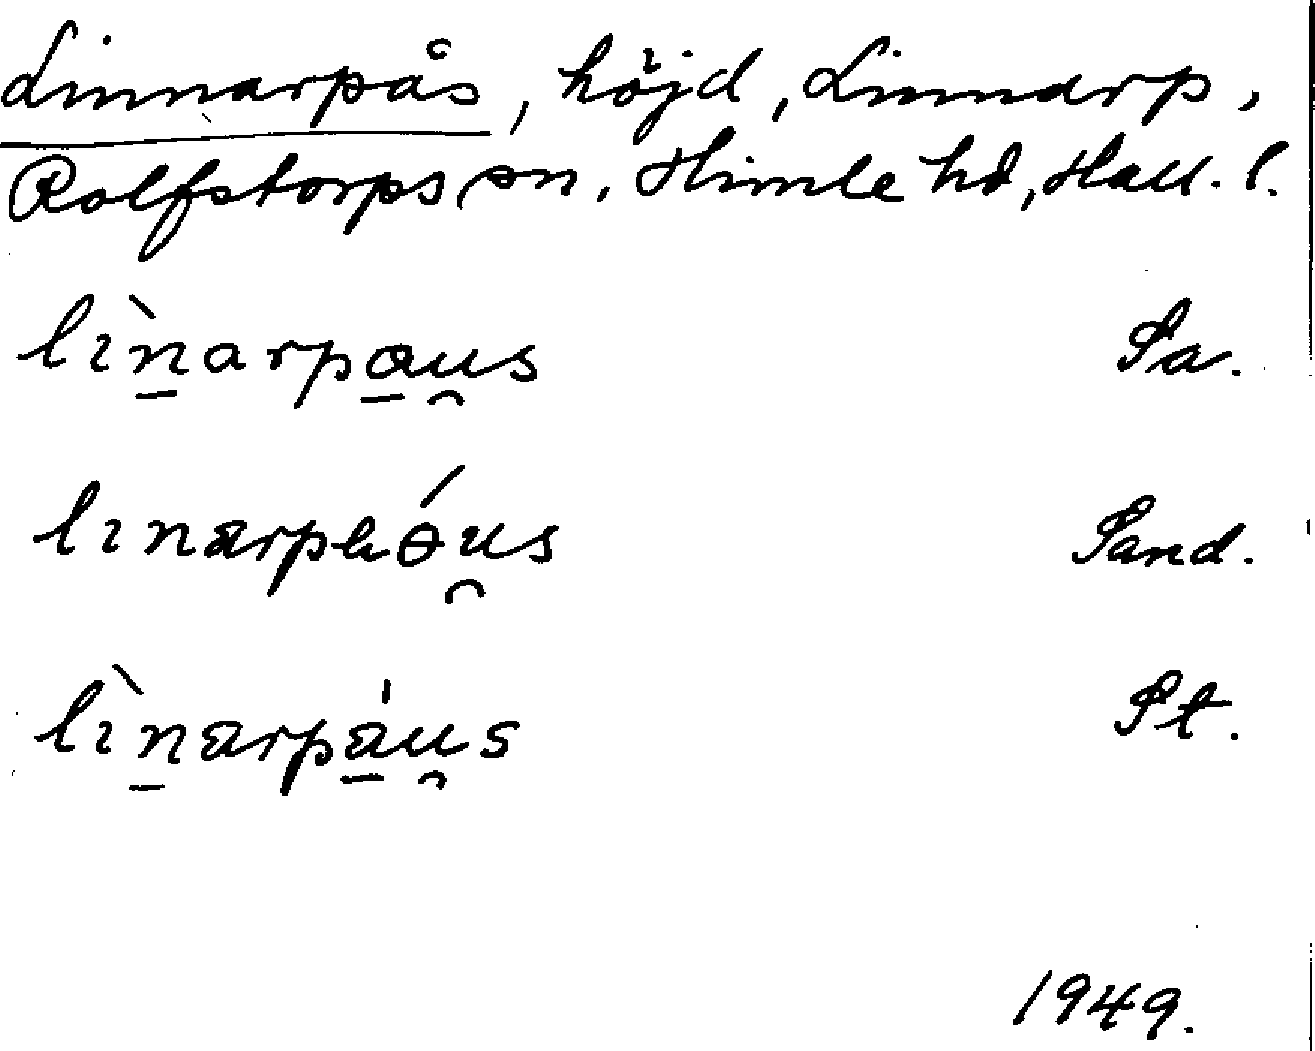 Linnarpås, höjd, Linnarp,
Rolfstorps sn, Himle hd, Hall. l.
lɩ̀n̲arpa̲u̯s Sa.
lɩnarphɵ́u̯s Sand.
lɩ̀n̲arpa̲̍u̯s St.
1949.